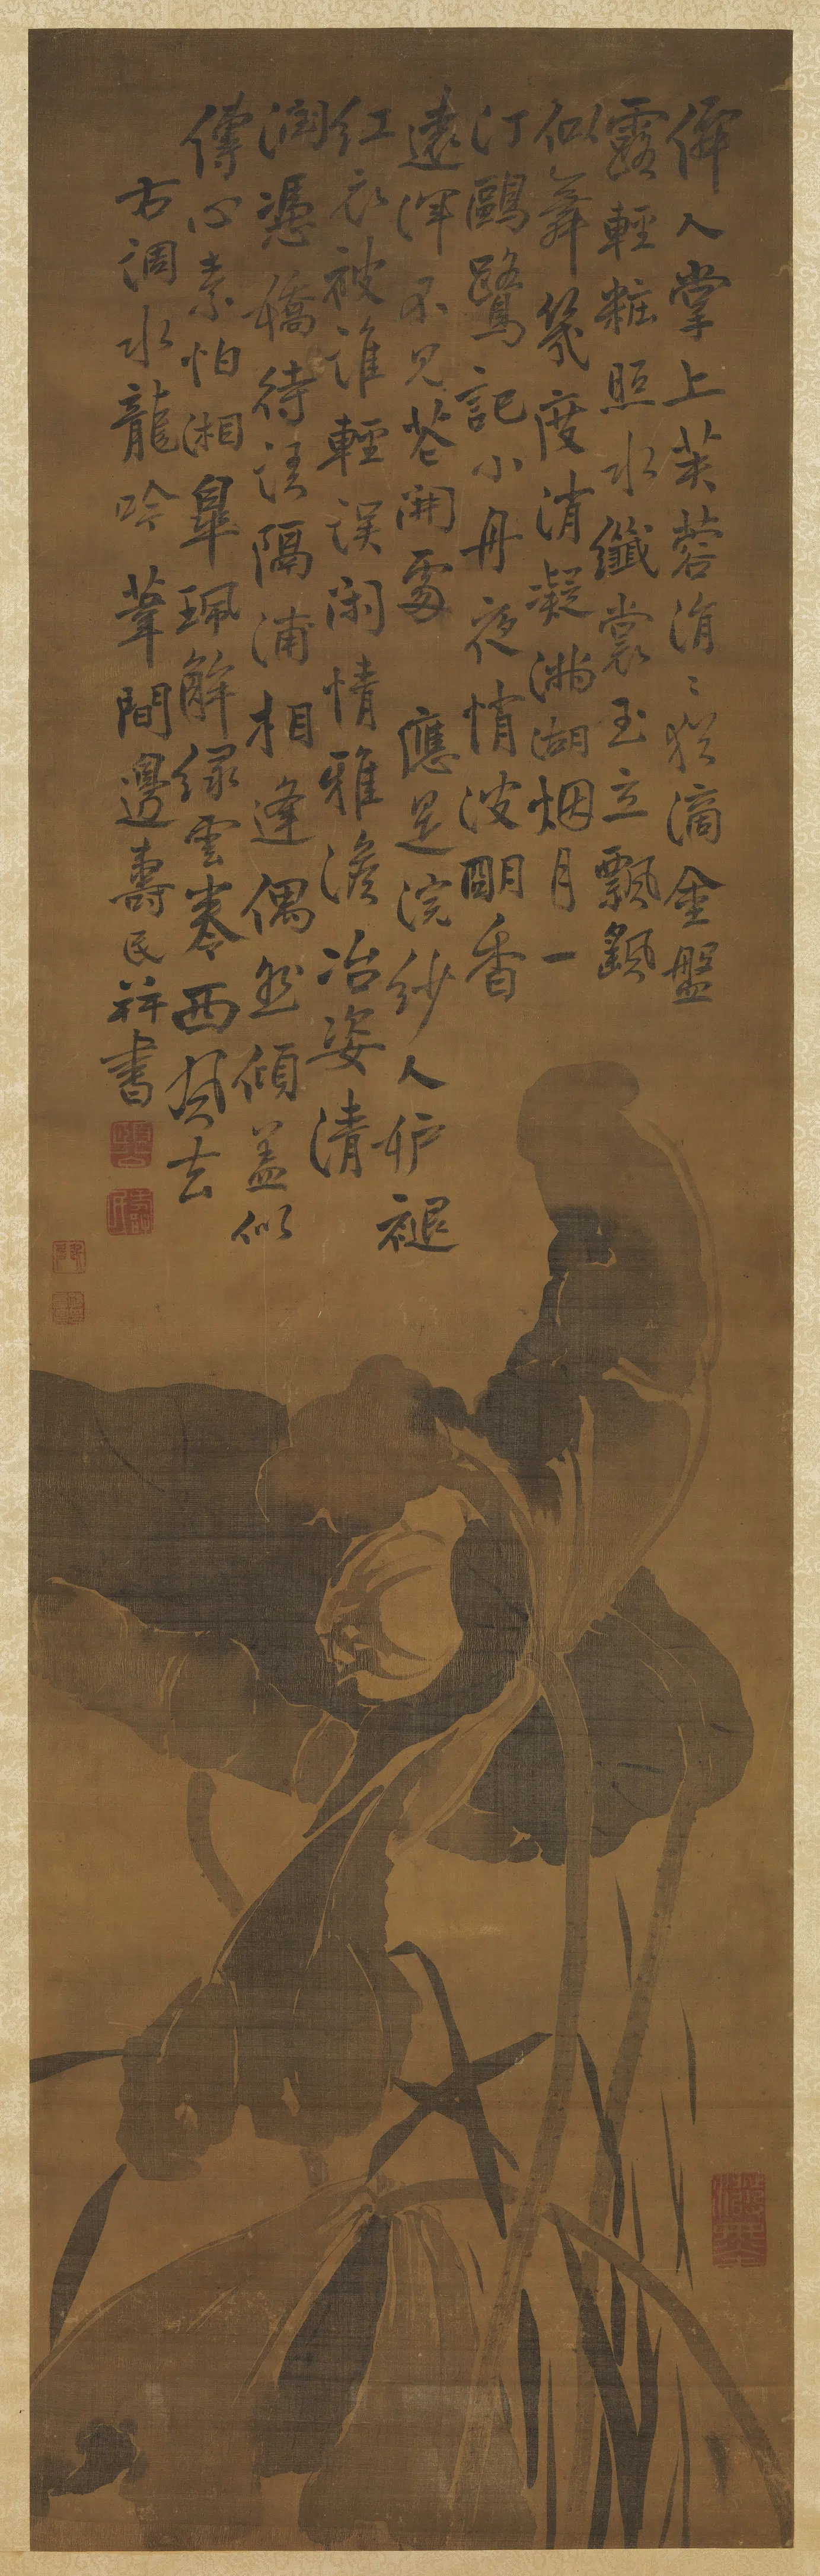 僊人掌上芙蓉涓〻猶滴金盤
露輕粧照水纖裳玉立飄飖
似舞幾度消凝滿湖烟月一
汀鷗鷺記小舟夜悄波明香
遠渾不見花開處 應是浣紗人妒褪
紅衣被誰輕誤閑情雅澹冶姿清
潤憑嬌待語隔浦相逢偶然傾蓋似
傳心素怕湘皐珮解綠雲卷西風去
右調水龍吟 葦間邊壽民并書
頤公
壽民